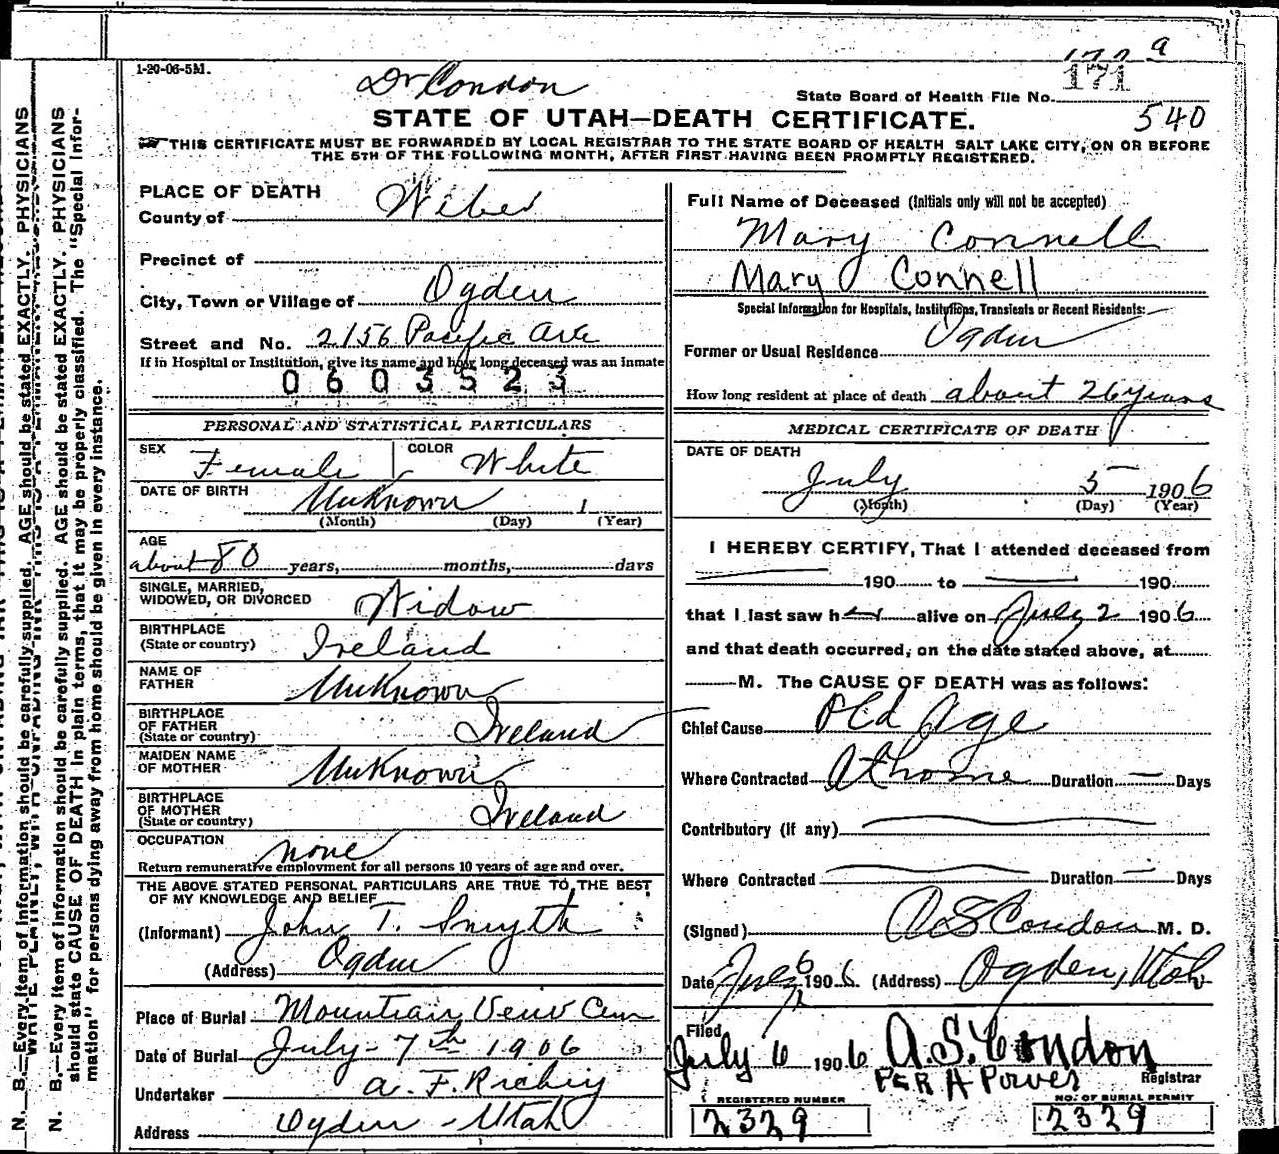 1-20-06-5M.
Dr Condon
171 a
State Board of Health File No.
540
STATE OF UTAH—DEATH CERTIFICATE.
THIS CERTIFICATE MUST BE FORWARDED BY LOCAL REGISTRAR TO THE STATE BOARD OF HEALTH SALT LAKE CITY, ON OR BEFORE
THE 5TH OF THE FOLLOWING MONTH, AFTER FIRST HAVING BEEN PROMPTLY REGISTERED.
PLACE OF DEATH
County of Weber
Precinct of
City, Town or Village of Ogden
Street and No. 2156 Pacific Ave
If in Hospital or Institution, give its name and how long deceased was an inmate
0603523
PERSONAL AND STATISTICAL PARTICULARS
SEX Female COLOR White
DATE OF BIRTH Unknown 1
(Month) (Day) (Year)
AGE
about 80 years, months, days
SINGLE, MARRIED,
WIDOWED, OR DIVORCED Widow
BIRTHPLACE
(State or country) Ireland
NAME OF
FATHER Unknown
BIRTHPLACE
OF FATHER
(State or country) Ireland
MAIDEN NAME
OF MOTHER Unknown
BIRTHPLACE
OF MOTHER
(State or country) Ireland
OCCUPATION none
Return remunerative employment for all persons 10 years of age and over.
THE ABOVE STATED PERSONAL PARTICULARS ARE TRUE TO THE BEST
OF MY KNOWLEDGE AND BELIEF
(Informant) John T. Smyth
(Address) Ogden
Place of Burial Mountain View Cem
Date of Burial July - 7th 1906
Undertaker A. F. Richey
Address Ogden - Utah
Full Name of Deceased (Initials only will not be accepted)
Mary Connell
Mary Connell
Special Information for Hospitals, Institutions, Transients or Recent Residents:
Former or Usual Residence Ogden
How long resident at place of death about 26 years
MEDICAL CERTIFICATE OF DEATH
DATE OF DEATH
July 5 1906
(Month) (Day) (Year)
I HEREBY CERTIFY, That I attended deceased from
190 to 190
that I last saw her alive on July 2 1906
and that death occurred, on the date stated above, at
M. The CAUSE OF DEATH was as follows:
Chief Cause Old Age
Where Contracted At home Duration — Days
Contributory (if any)
Where Contracted Duration — Days
(Signed) A S Condon M. D.
Date July 6 1906. (Address) Ogden, Utah
Filed
July 6 1906 A. S. Condon
PER A Power Registrar
REGISTERED NUMBER NO. OF BURIAL PERMIT
2329 2329
N. B.—Every item of information should be carefully supplied. AGE should be stated EXACTLY. PHYSICIANS
should state CAUSE OF DEATH in plain terms, that it may be properly classified. The "Special Infor-
mation" for persons dying away from home should be given in every instance.